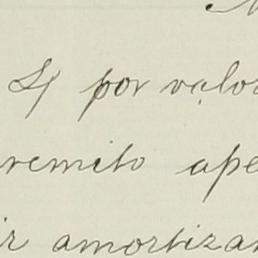 por valor
remito ape
ir amortizan